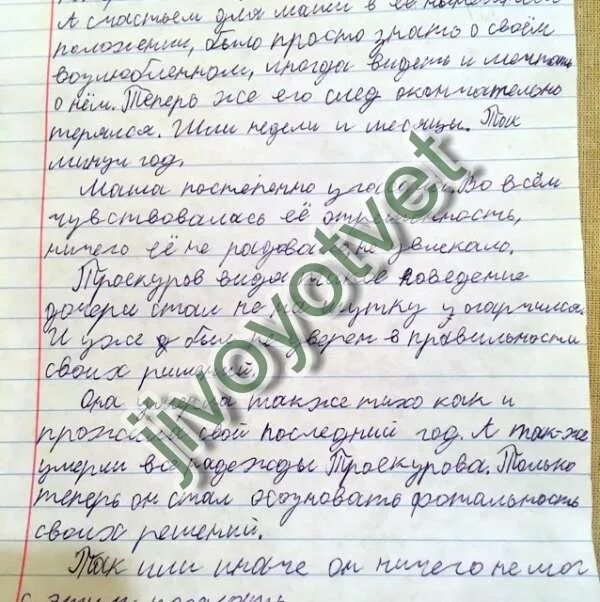 А счастьем для маши в её
положении, было просто знать о своём
возлюбленном, иногда видеть и мечтать
о нём. Теперь же его след окончательно
терялся. Шли недели и месяцы. Так
минул год.
Маша постепенно угасала. Во всём
чувствовалась её отрешенность,
ничего её не радовало не увлекало.
Троекуров видя такое поведение
дочери стал не на шутку
И уже был не уверен в правильности
своих решений.
Она также тихо как и
прожила свой последний год. А так-же
умерли все надежды Троекурова. Только
теперь он стал осозновать фотальность
своих решений.
Так или иначе он ничего не мог
с этим
jivoyotvet